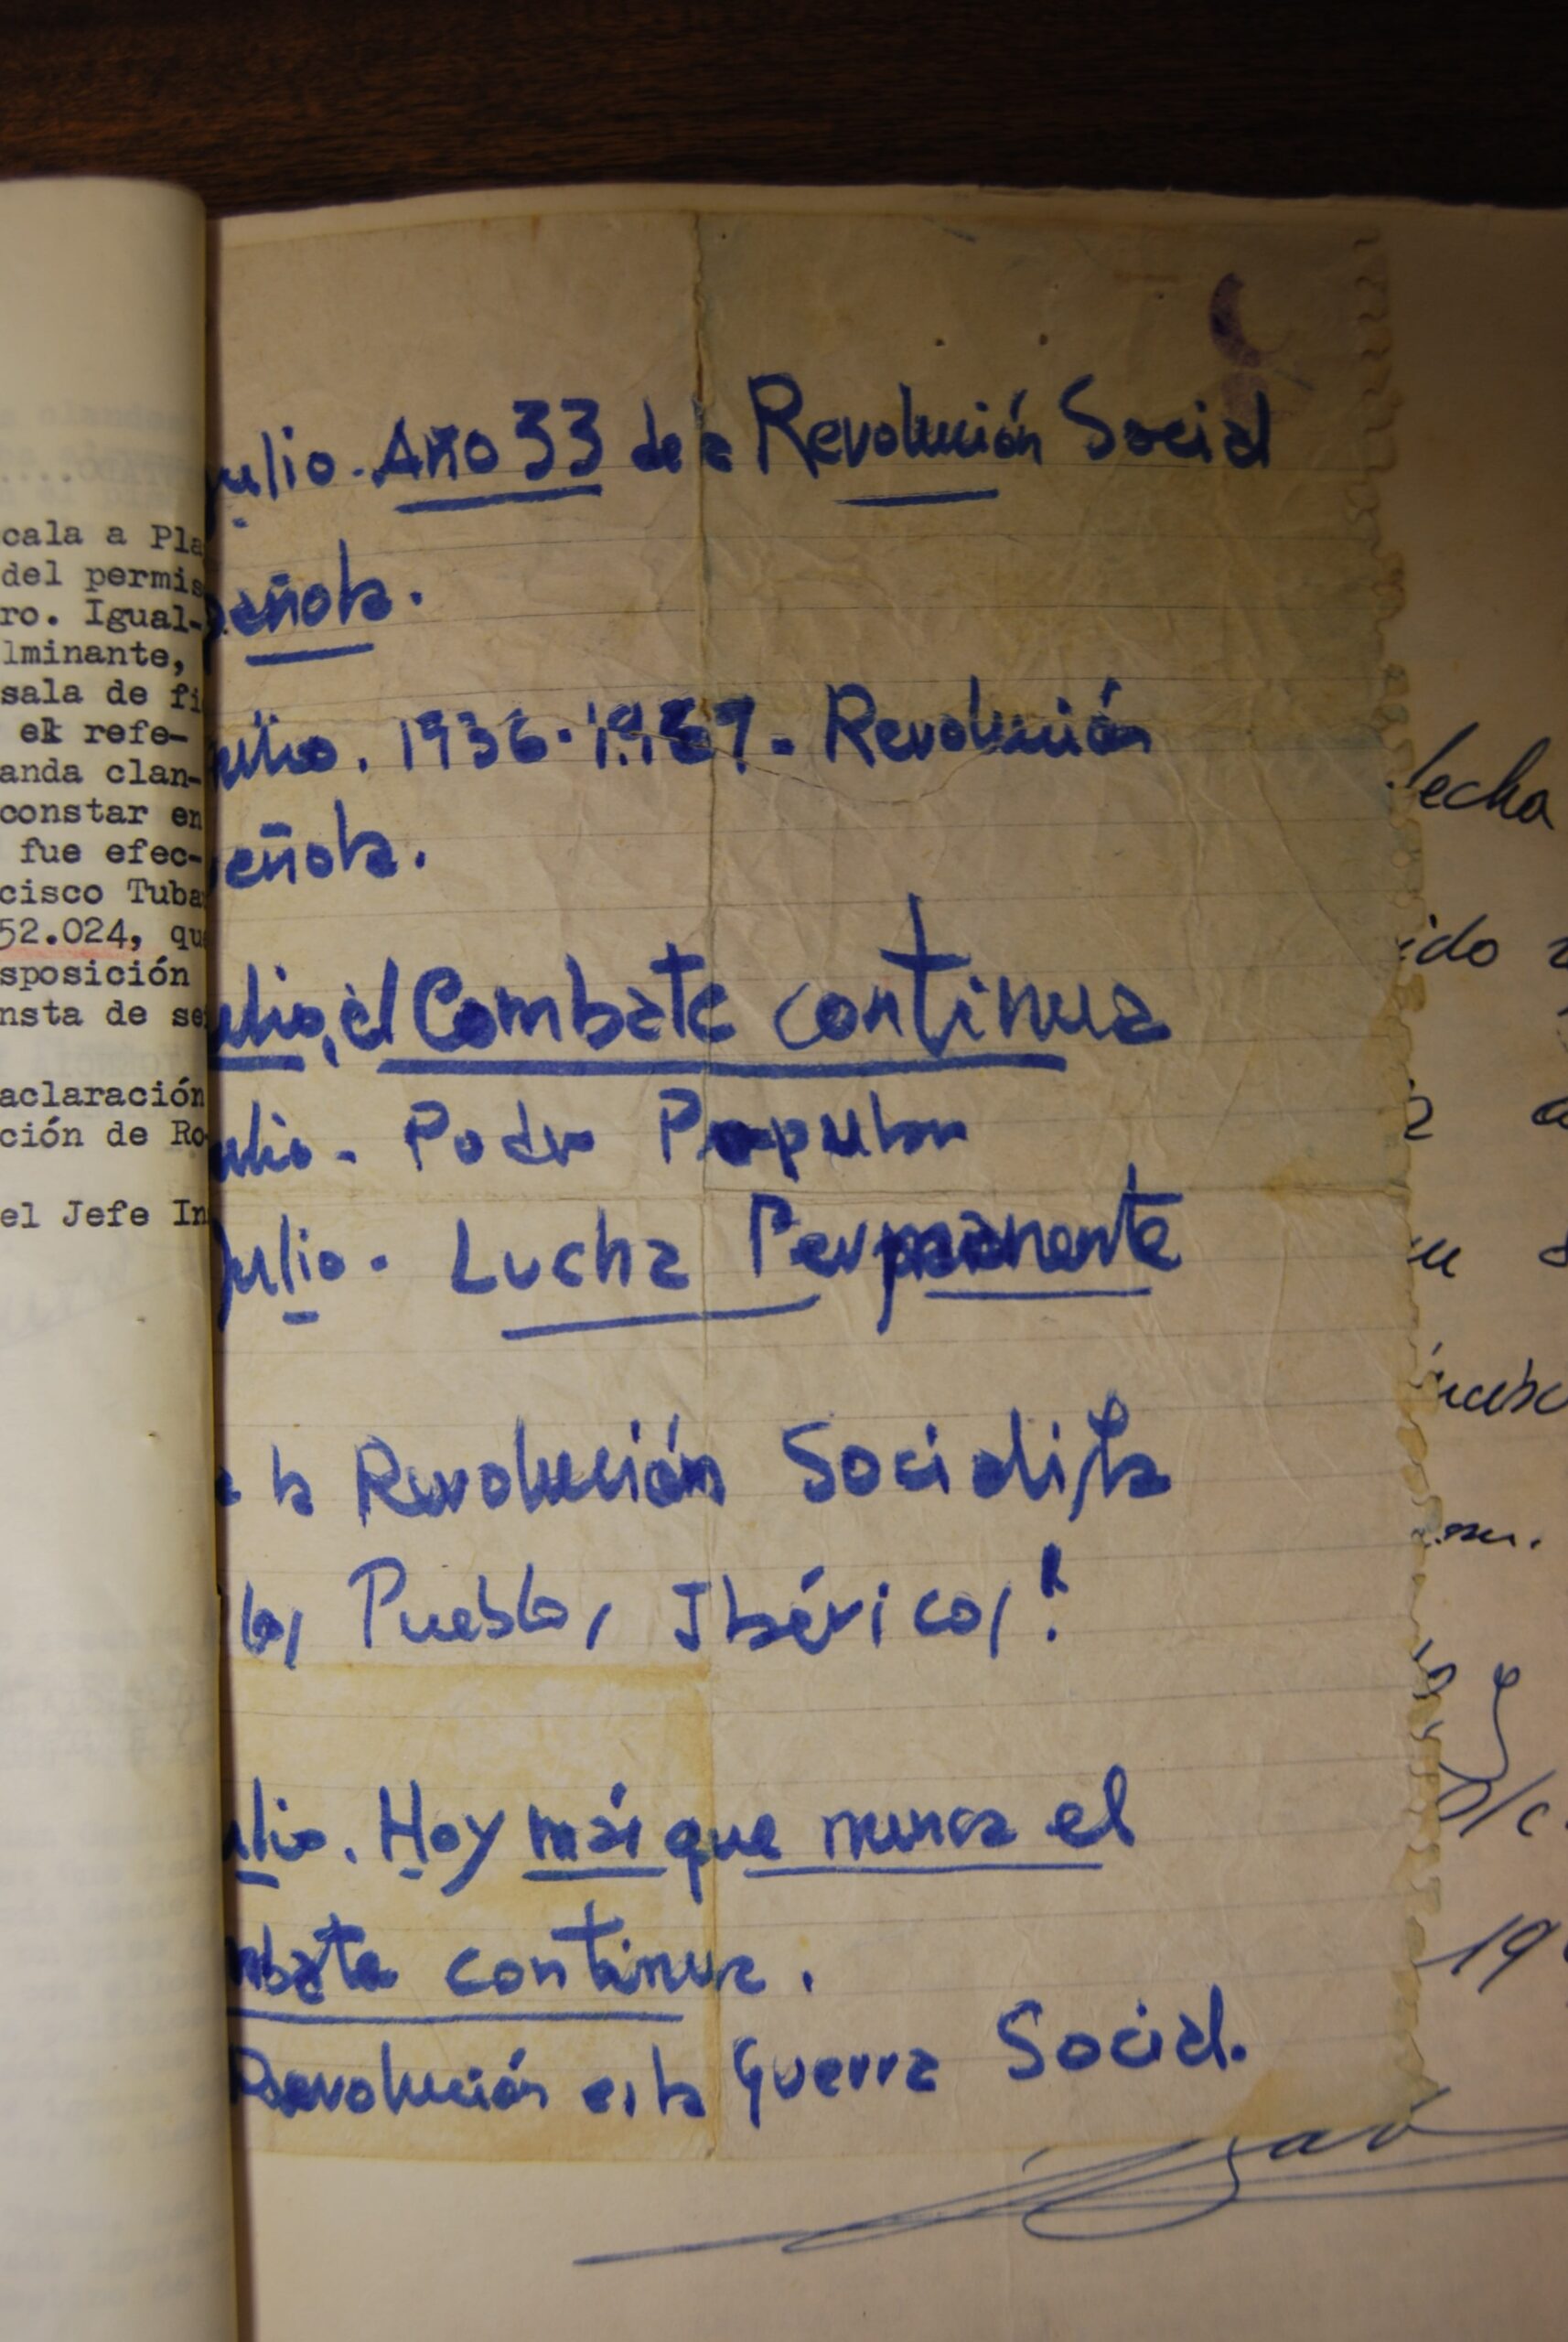 cala a Pla
del permis
ro. Igual-
lminante,
sala de fi
ek refe-
anda clan-
constar en
fue efec-
cisco Tuba
52.024, qu
sposición
nsta de se
aclaración
ción de Ro
el Jefe In
ulio. Año 33 de la Revolución Social
peñola.
ulio. 1936-1969. Revolución
eñola.
ulio, el Combate continua
ulio. Poder Popular
Julio. Lucha Permanente
a la Revolución Socialista
los Pueblos Ibéricos!
ulio. Hoy más que nunca el
mbate continua.
Revolución es la Guerra Social.
fecha
ido
19